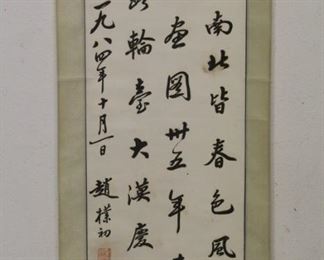 南北皆春色風
畫圖卅五年
輪臺大漠慶
一九八四年十月一日
趙樸初